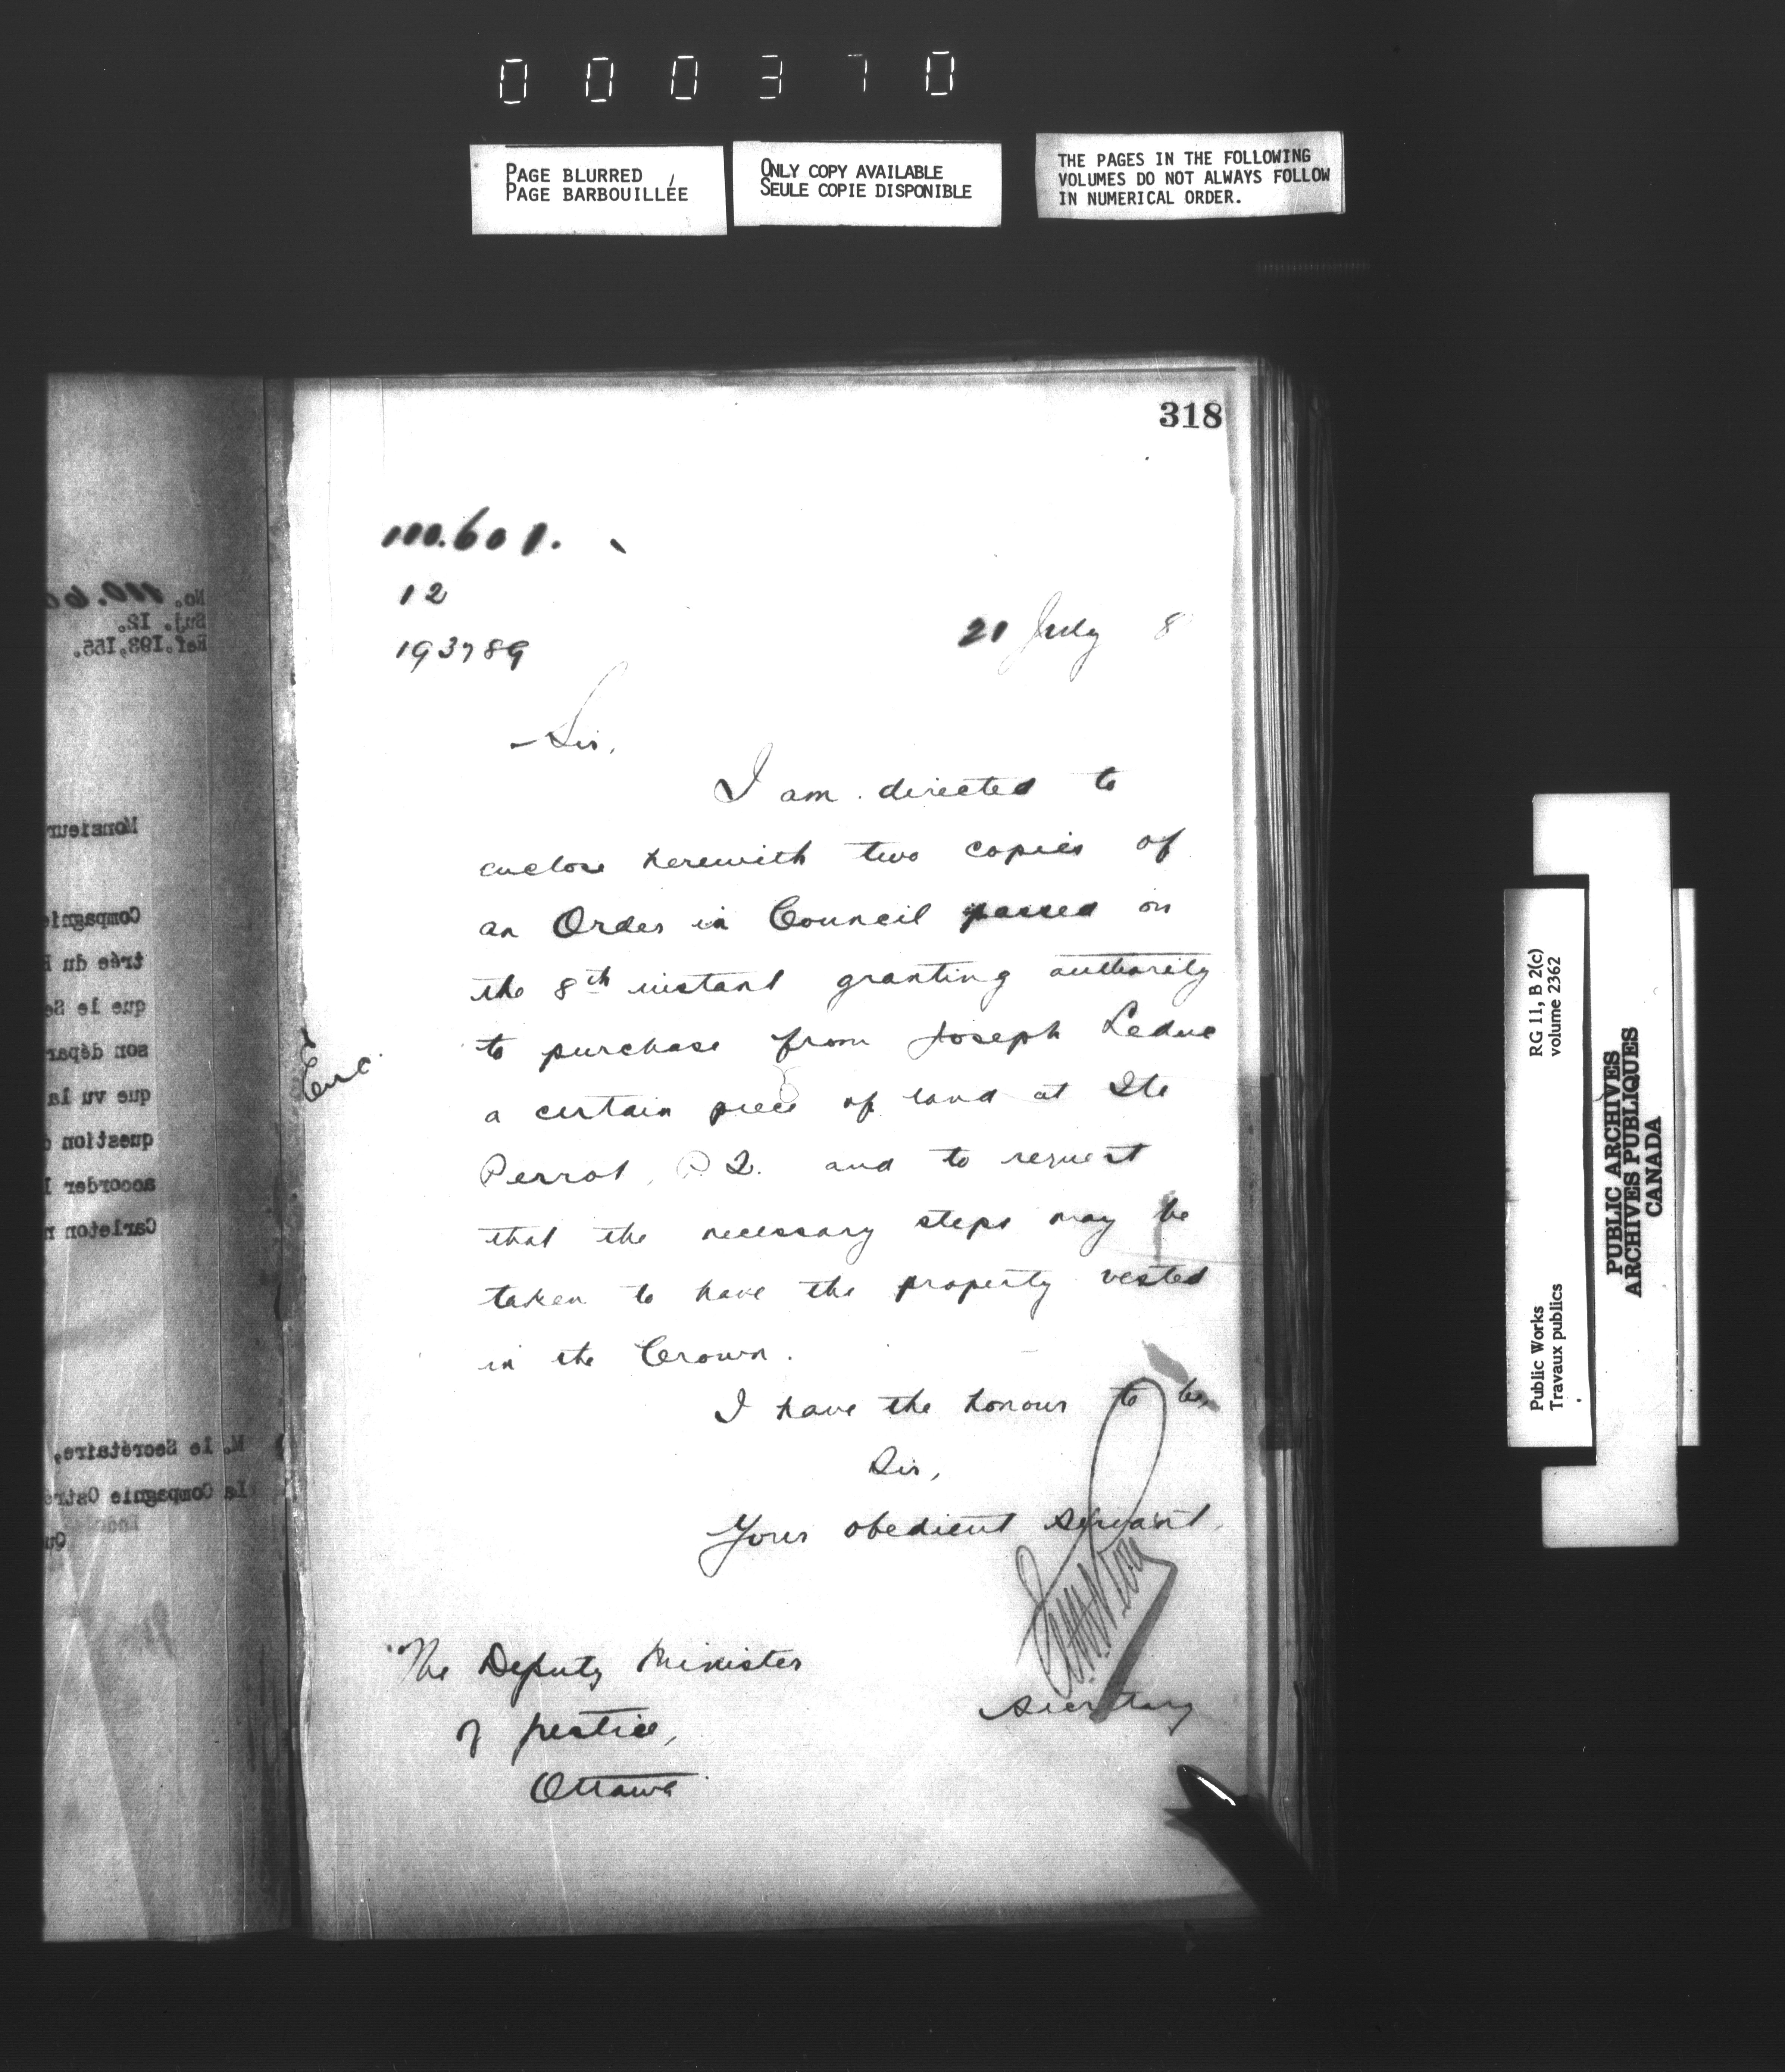 000370
PAGE BLURRED
PAGE BARBOUILLÉE
ONLY COPY AVAILABLE
SEULE COPIE DISPONIBLE
THE PAGES IN THE FOLLOWING
VOLUMES DO NOT ALWAYS FOLLOW
IN NUMERICAL ORDER.
318
110.601.
12
193789
21 July 8
Sir,
I am directed to
enclose herewith two copies of
an Order in Council passed on
the 8th instant granting authority
to purchase from Joseph Leduc
Enc.
a certain piece of land at Ile
Perrot, P.Q. and to request
that the necessary steps may be
taken to have the property vested
in the Crown.
I have the honour to be,
Sir,
Your obedient servant,
Secretary
The Deputy Minister
of Justice,
Ottawa
No. 110.60
Suj. 12.
Ref.193,155.
Monsieur
Compagnie
trée du
que le Se
son dépar
que vu la
question
accorder
Carleton
M. le Secrétaire,
La Compagnie Ostr
RG 11, B 2(c)
volume 2362
Public Works
Travaux publics
PUBLIC ARCHIVES
ARCHIVES PUBLIQUES
CANADA